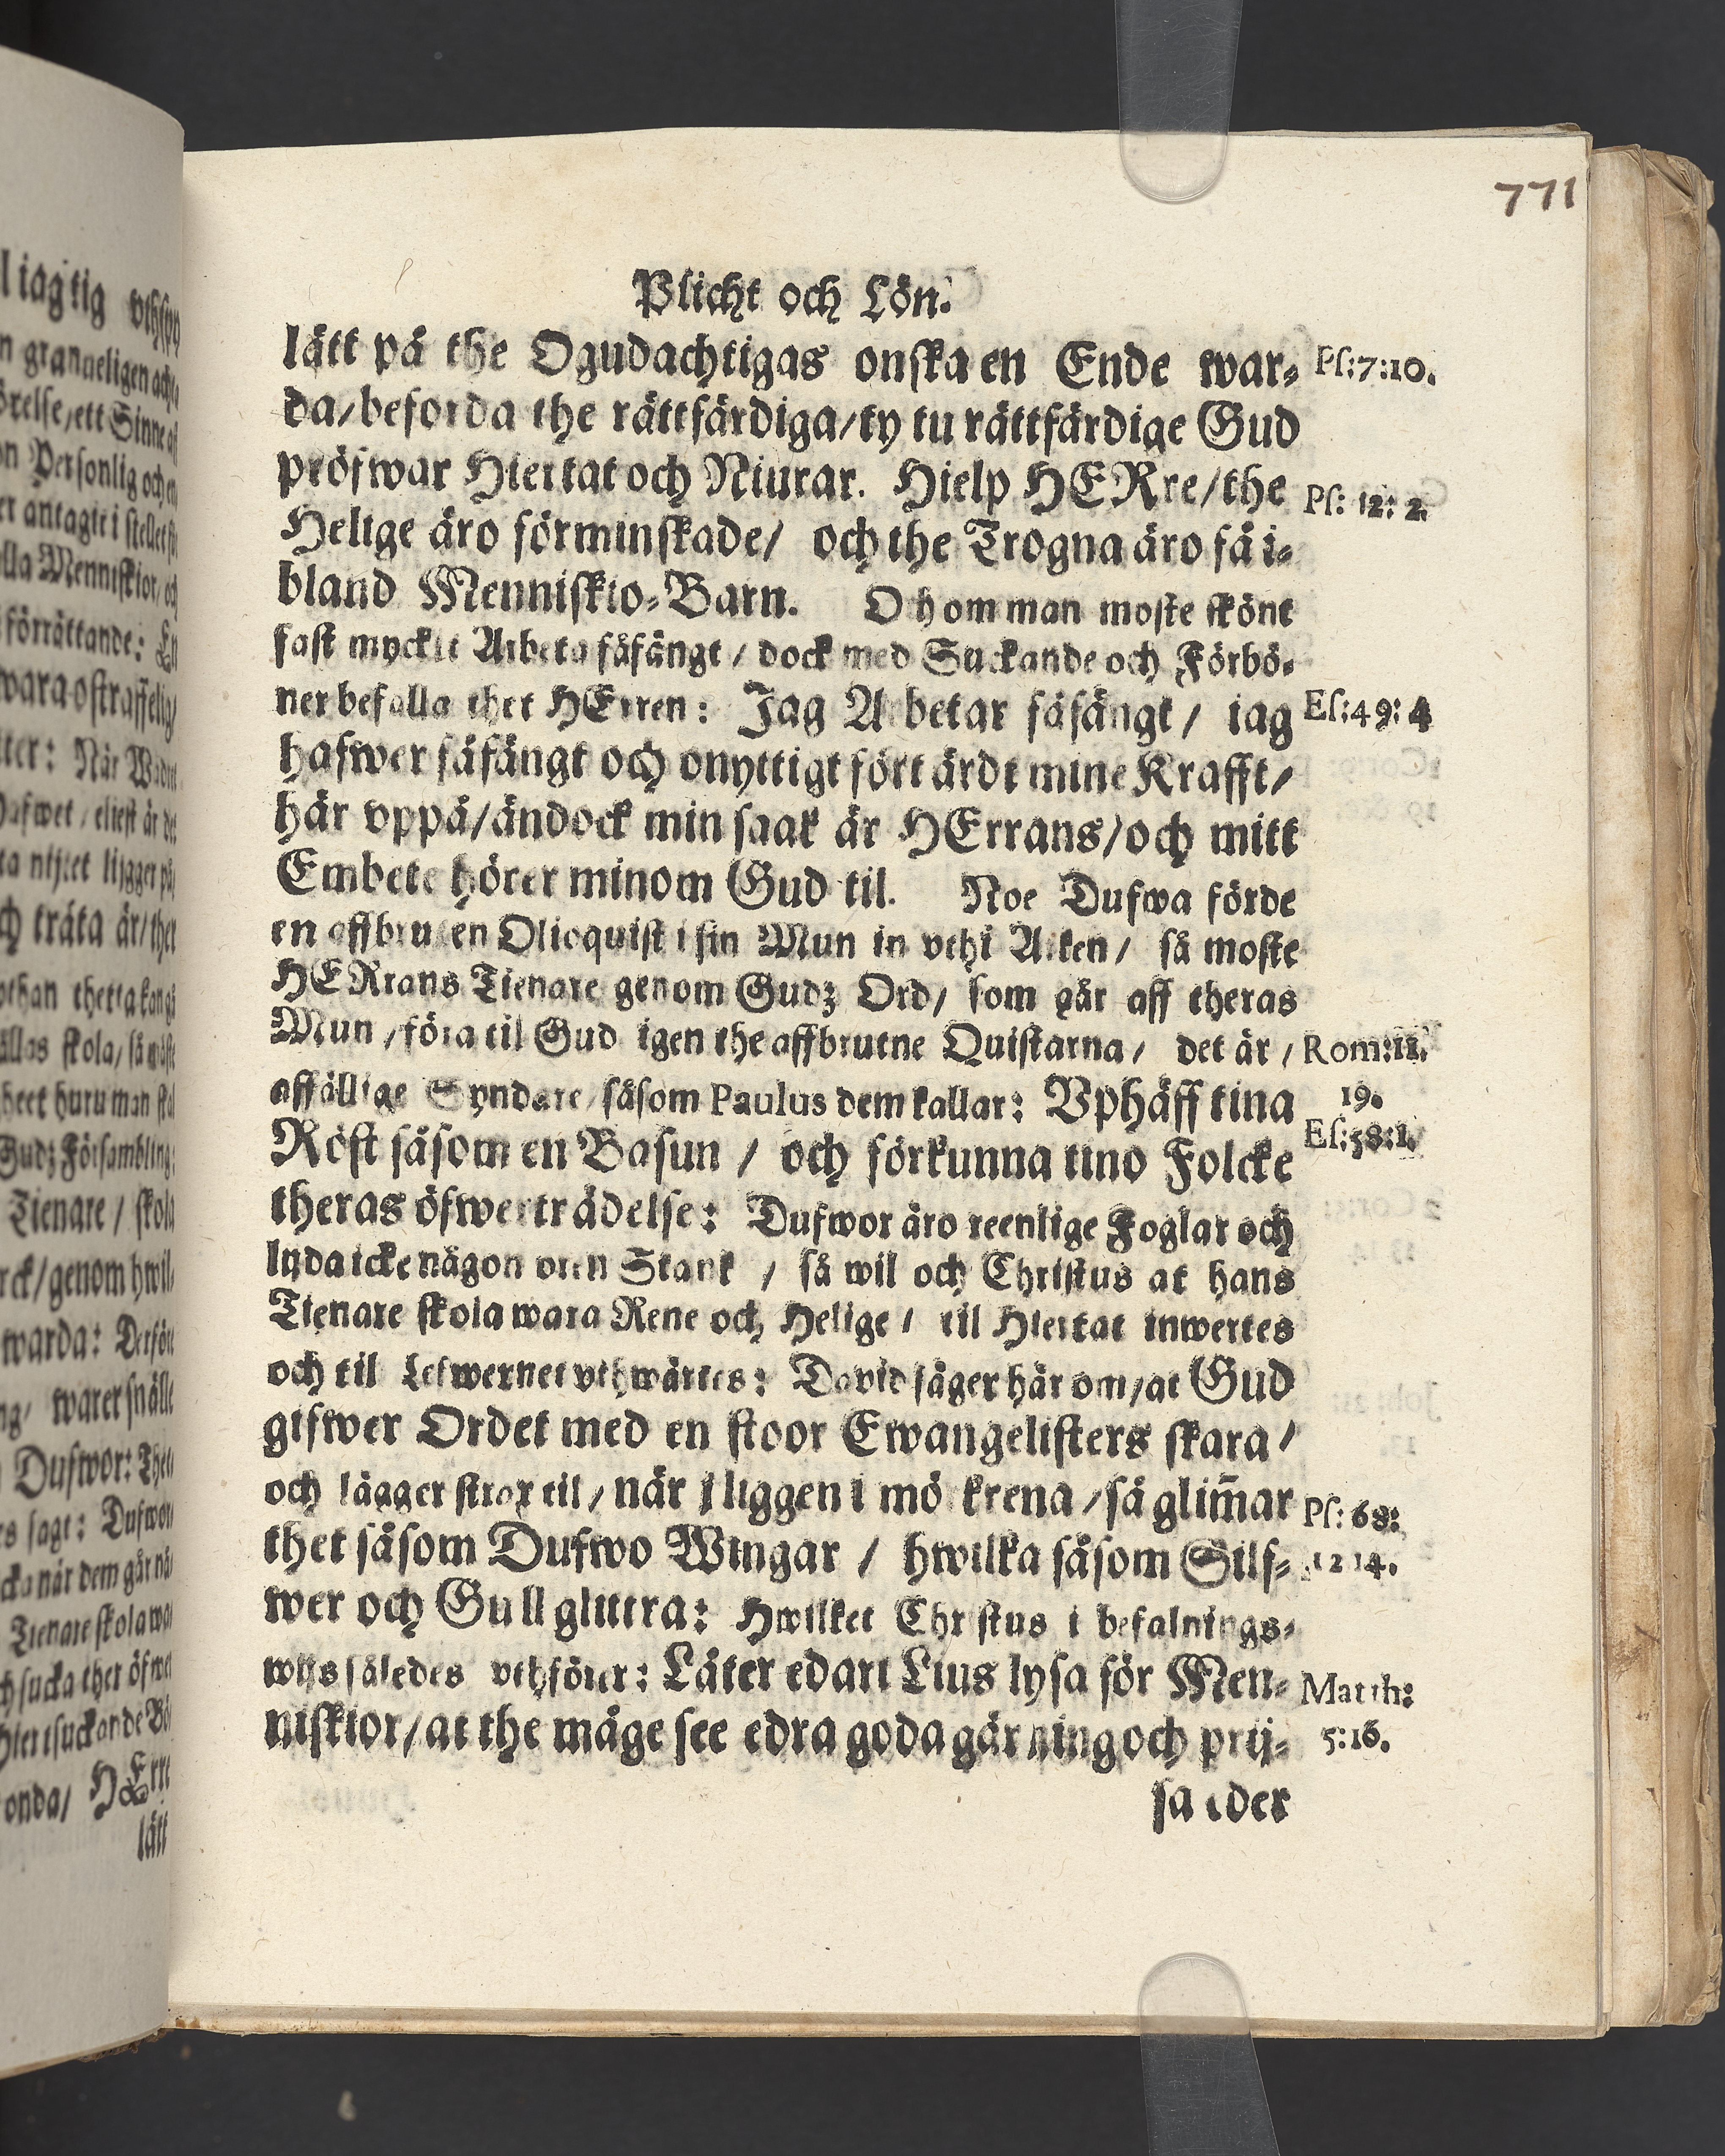 771
Plicht och Lön.
lätt på the Ogudachtigas onska en Ende war-
Ps:7:10.
da/beforda the rättfärdiga/ty tu rättfärdige Gud
pröfwar Hiertat och Niurar. Hielp HERre/the
Ps: 12: 2.
Helige äro förminskade/ och the Trogna äro få i-
bland Menniskio-Barn. O hom man moste skönt
fast myckit Arbeta fåfängt/dock med Suckande och Förbö-
ner befalla thet HErren: Jag Arbetar fåfängt/ iag
Es:49:4
hafwer fåfängt och onyttigt fört ärdt mine Krafft/
här vppå/ändock min saak är HErrans/och mitt
Embete hörer minom Gud til. Noe Dufwa förde
en affbruten Olioquist i sin Mun in vthi Arken/ så moste
HERrans Tienare genom Gudz Ord/ som går aff theras
Mun/föra til Gud igen the affbrutne Quistarna/ det är/
Rom:11.
affällige Syndare/såsom Paulus dem kallar: Vphäff tina
19.
Röst såsom en Basun / och förkunna tino Folcke
Es:58:1.
theras öfwerträdelse: Dufwor äro reenlige Foglar och
lyda icke någon oren Stank / så wil och Christus at hans
Tienare skola wara Rene och Helige/ til Hiertat inwertes
och til Lefwernet vthwärtes: David säger här om/at Gud
gifwer Ordet med en stoor Ewangelisters skara/
och lägger strax til/när j liggen i mö krena/så glim̃ar
Ps: 68:
thet såsom Dufwo Wingar / hwilka såsom Silf-
12 14.
wer och Gull glittra: Hwilket Christus i befalnings-
wijs således vthförer: Låter edart Lius lysa för Men-
Matth:
niskior/at the måge see edra goda gärning och prij-
5:16.
sa eder